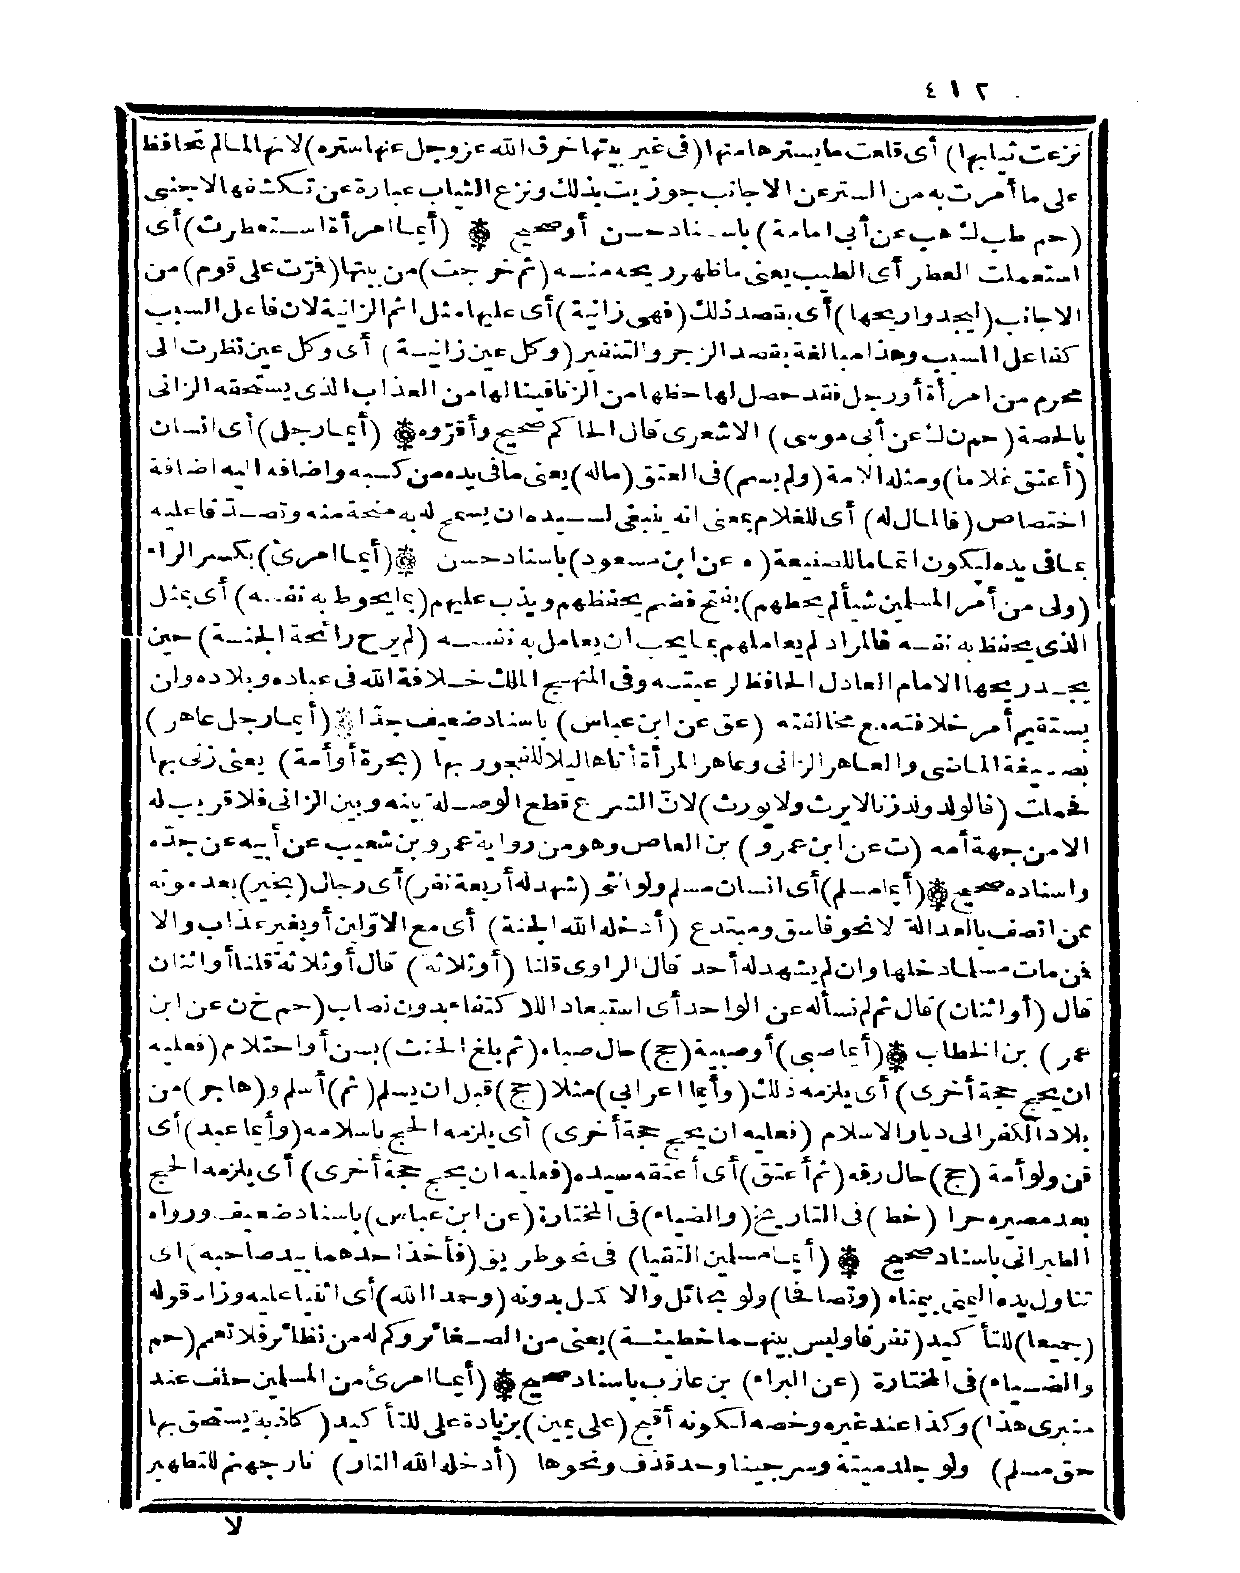 ٤١٢
نزعت ثيابها) أى قلعت ما يسترها منها (فى غير بيتها خرق الله عز وجل عنها ستره) لانها لما لم تحافظ
على ما أمرت به من الستر عن الاجانب جوزيت بذلك ونزع الثياب عبارة عن تكشفها لاجنبى
(حم طب ك هب عن أبى امامة) باسناد حسن أوصحيح (أيما امرأة استعطرت) أى
استعملت العطر أى الطيب يعنى ما ظهر ريحه منه (ثم خرجت) من بيتها (فمرّت على قوم) من
الاجانب (ليجدوا ريحها) أى بقصد ذلك (فهى زانية) أى عليها مثل اثم الزانية لان فاعل السبب
كفاعل المسبب وهذا مبالغة بقصد الزجر والتنفير (وكل عين زانية) أى وكل عين نظرت الى
محرم من امرأة أورجل فقد حصل لها حظها من الزنا فينالها من العذاب الذى يستحقه الزانى
بالحصة (حم ن ك عن أبى موسى) الاشعرى قال الحاكم صحيح وأقرّوه (أيما رجل) أى انسان
(أعتق غلاما) ومثله الامة (ولم يسم) فى العتق (ماله) يعنى ما فى يده من كسبه واضافه اليه اضافة
اختصاص (فالمال له) أى للغلام بمعنى انه ينبغى لسيده ان يسمح له به منحة منه وتصدقا عليه
بما فى يده ليكون اتماما للصنيعة (ه عن ابن مسعود) باسناد حسن (أيما امرئ) بكسر الراء
(ولى من أمر المسلمين شيأ لم يحطهم) بفتح فضم يحفظهم ويذب عليهم (بما يحوط به نفسه) أى بمثل
الذى يحفظ به نفسه فالمراد لم يعاملهم بما يحب ان يعامل به نفسه (لم يرح رائحة الجنة) حين
يجد ريحها الامام العادل الحافظ لرعيته وفى المنهج الملك خلافة الله فى عباده وبلاده ولن
يستقيم أمر خلافته مع مخالفته (عق عن ابن عباس) باسناد ضعيف جدّا (أيما رجل عاهر)
بصيغة الماضى والعاهر الزانى وعاهر المرأة أتاها ليلا للفجور بها (بحرة أوأمة) يعنى زنى بها
فحملت (فالولد ولد زنا لا يرث ولا يورث) لانّ الشرع قطع الوصلة بينه وبين الزانى فلا قريب له
الا من جهة أمه (ت عن ابن عمرو) بن العاص وهو من رواية عمرو بن شعيب عن أبيه عن جدّه
واسناده صحيح (أيما مسلم) أى انسان مسلم ولو انثى (شهد له أربعة نفر) أى رجال (بخير) بعد موته
ممن اتصف بالعدالة لا نحو فاسق ومبتدع (أدخله الله الجنة) أى مع الاوّلين أو بغير عذاب والا
فمن مات مسلما دخلها وان لم يشهد له أحد قال الراوى قلنا (أوثلاثة) قال أوثلاثة قلنا أواثنان
قال (أواثنان) قال ثم لم نسأله عن الواحد أى استبعادا للاكتفاء بدون نصاب (حم خ ن عن ابن
عمر) بن الخطاب (أيما صبى) أوصبية (حج) حال صباه (ثم بلغ الحنث) بسن أواحتلام (فعليه
ان يحج حجة أخرى) أى يلزمه ذلك (وأيما اعرابى) مثلا (حج) قبل ان يسلم (ثم) أسلم و(هاجر) من
بلاد الكفر الى ديار الاسلام (فعليه ان يحج حجة أخرى) أى يلزمه الحج باسلامه (وأيما عبد) أى
قن ولو أمة (حج) حال رقه (ثم أعتق) أى أعتقه سيده (فعليه ان يحج حجة أخرى) أى يلزمه الحج
بعد مصيره حرا (خط) فى التاريخ (والضياء) فى المختارة (عن ابن عباس) باسناد ضعيف ورواه
الطبرانى باسناد صحيح (أيما مسلمين التقيا) فى نحو طريق (فأخذ احدهما بيد صاحبه) اى
تناول يده اليمنى بيمناه (وتصافحا) ولو بحائل والاكمل بدونه (وحمد الله) أى اثنيا عليه وزاد قوله
(جميعا) للتأكيد (تفرقا وليس بينهما خطيئة) يعنى من الصغائر وكم له من نظائر فلا تعم (حم
والضياء) فى المختارة (عن البراء) بن عازب باسناد صحيح (أيما امرئ من المسلمين حلف عند
منبرى هذا) وكذا عند غيره وخصه لكونه أقبح (على يمين) بزيادة على للتأكيد (كاذبة يستحق بها
حق مسلم) ولو جلد ميتة وسرجينا وحد قذف ونحوها (أدخله الله النار) نار جهنم للتطهير
لا